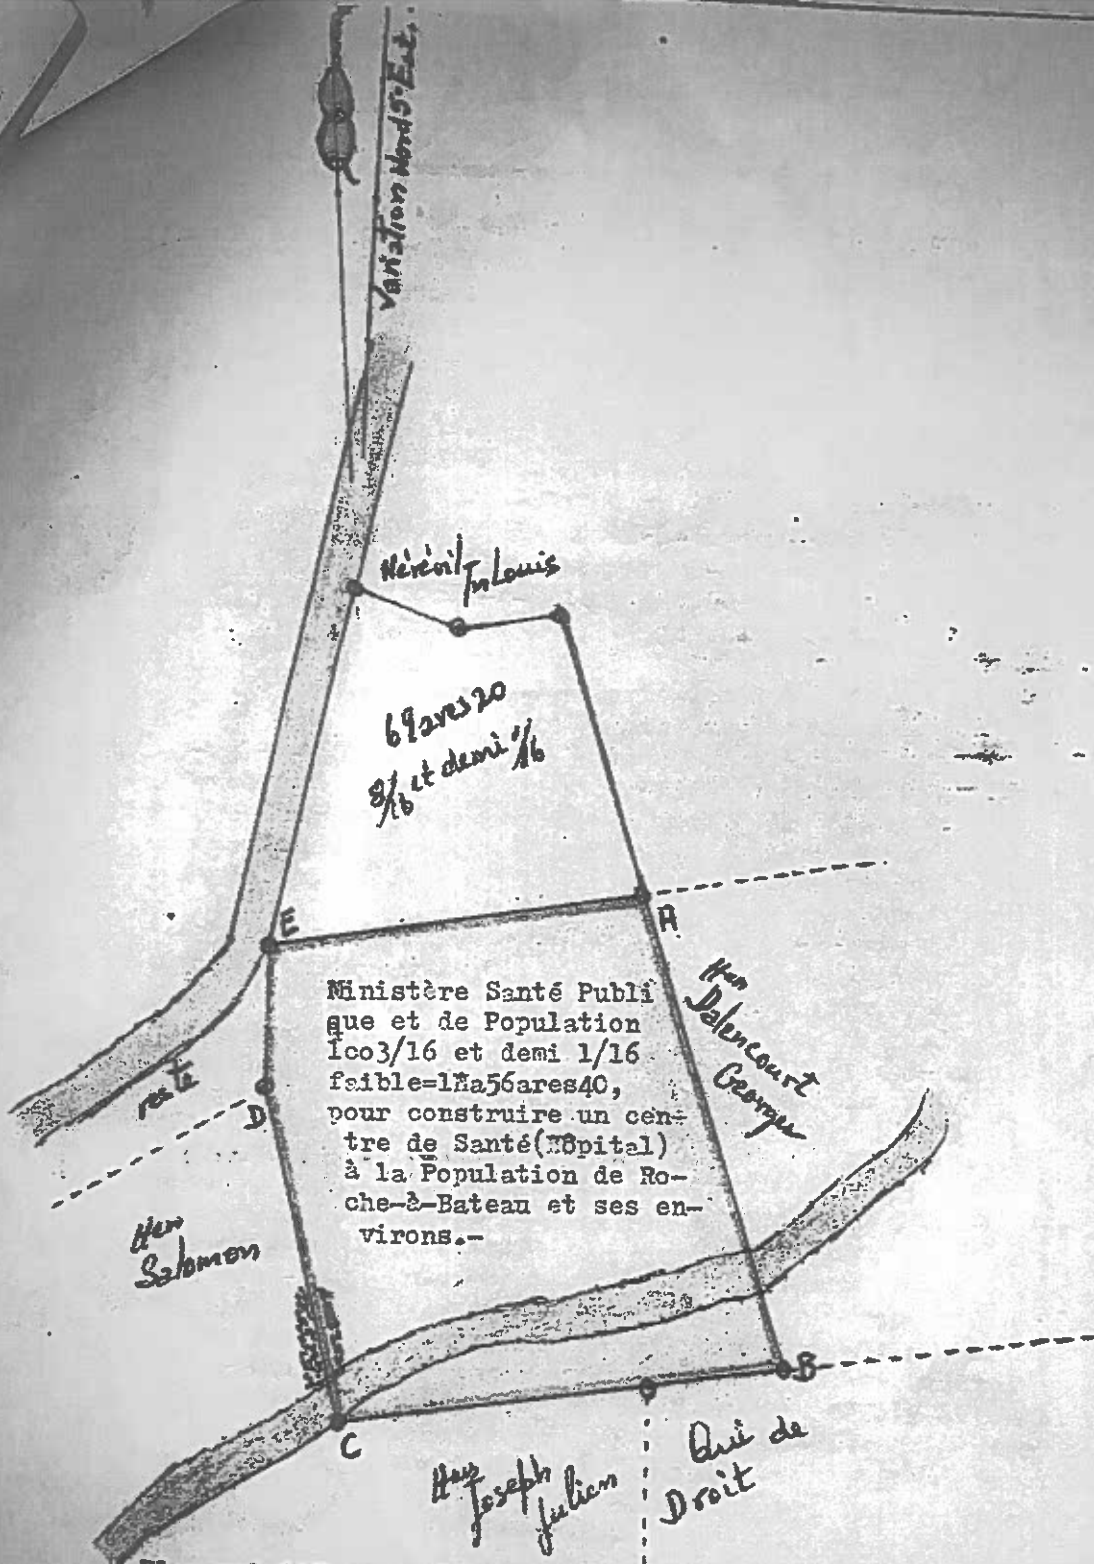 Variation Nord 5° Est.
Jn Louis
69 ares 20
8/16 et demi 1/16
E
A
Ministère Santé Publi
que et de Population
Ico3/16 et demi 1/16
faible=1Ha56ares40,
pour construire un cen-
tre de Santé(Hôpital)
à la Population de Ro-
che-à-Bateau et ses en-
virons.-
Hers
Dalencourt
Georges
reste
D
Hers
Salomon
B
C
Hers
Joseph
Julien
Qui de
Droit